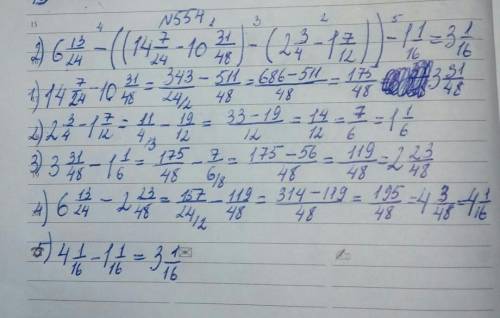 №554
2) 6 13/24 - ((14 7/24 - 10 31/48) - (2 3/4 - 1 7/12)) - 1 1/16 = 3 1/16
1) 14 7/24 - 10 31/48 = 343/24/2 - 511/48 = 686-511/48 = 175/48 3 31/48
2) 2 3/4 - 1 7/12 = 11/4/3 - 19/12 = 33-19/12 = 14/12 = 7/6 = 1 1/6
3) 3 31/48 - 1 1/6 = 175/48 - 7/6/8 = 175-56/48 = 119/48 = 2 23/48
4) 6 13/24 - 2 23/48 = 157/24/2 - 119/48 = 314-119/48 = 195/48 = 4 3/48 = 4 1/16
5) 4 1/16 - 1 1/16 = 3 1/16